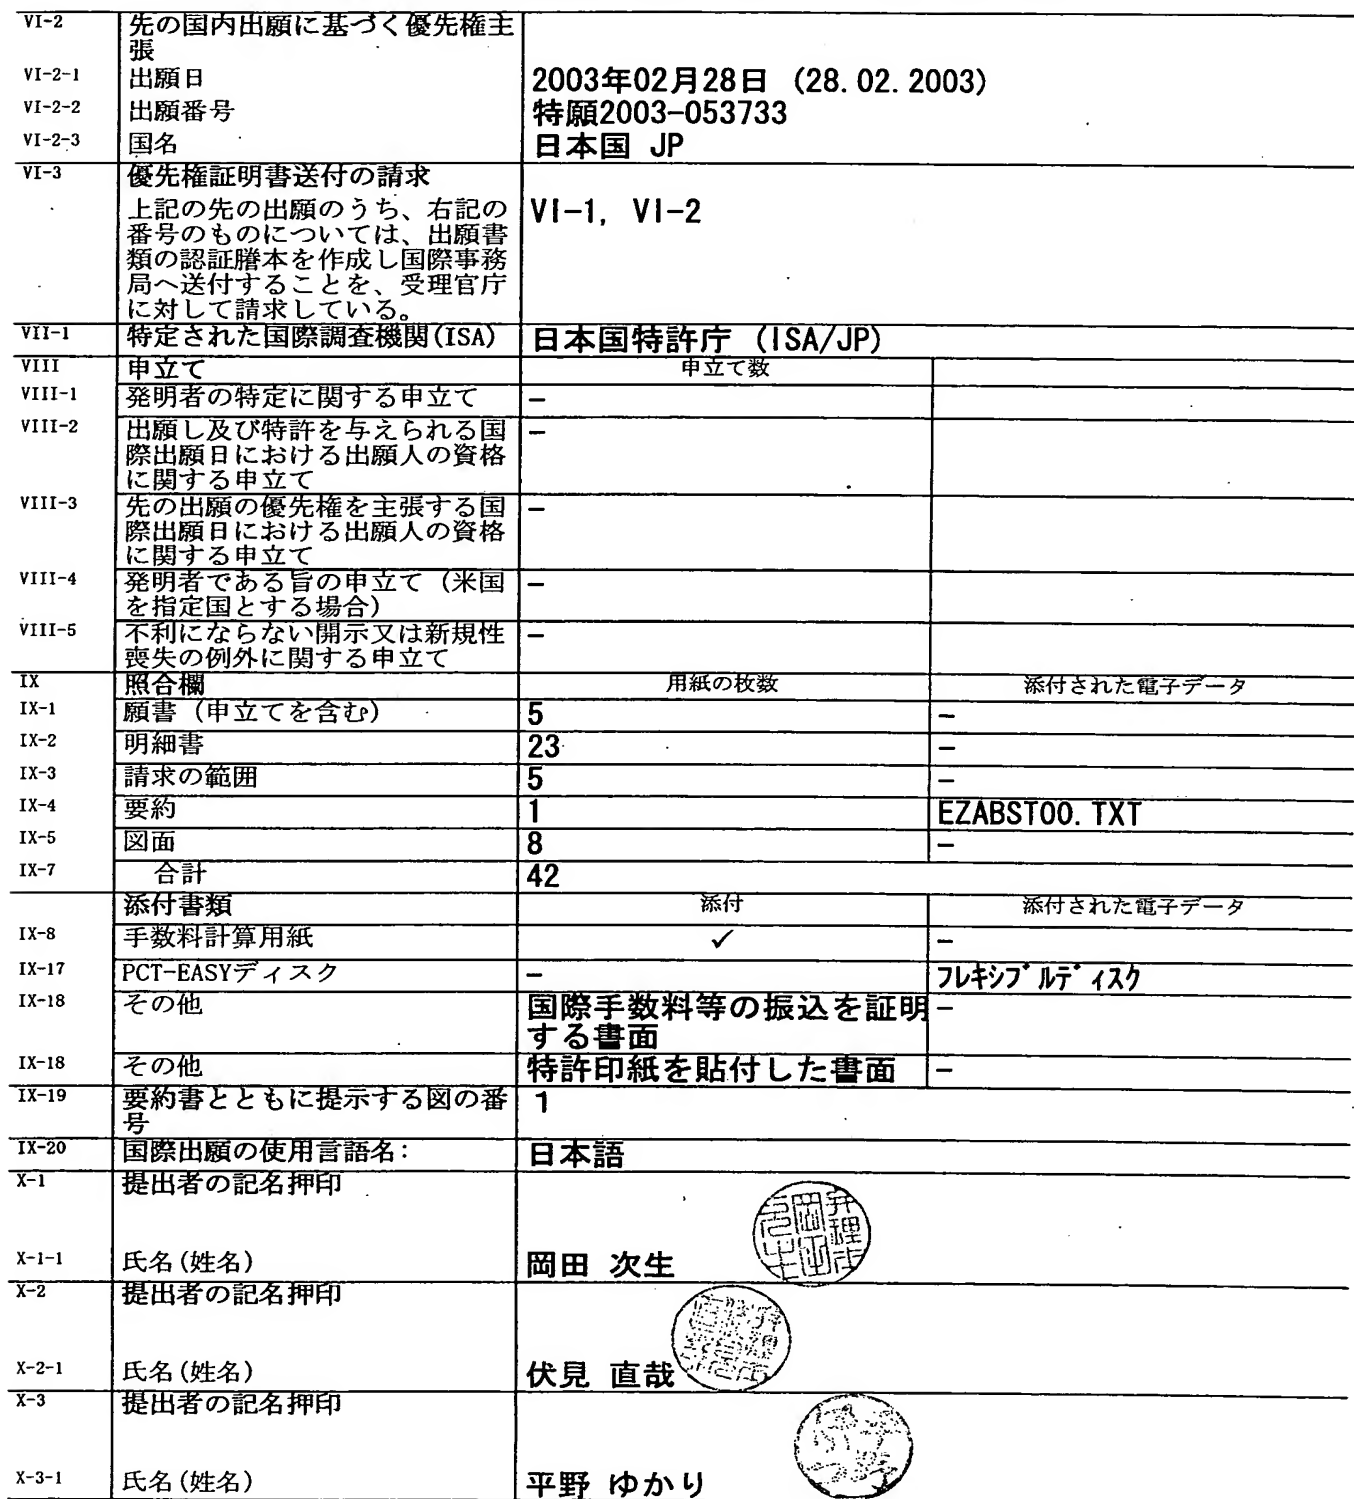 VI-2 先の国内出願に基づく優先権主
張
VI-2-1 出願日 2003年02月28日 (28.02.2003)
VI-2-2 出願番号 特願2003-053733
VI-2-3 国名 日本国 JP
VI-3 優先権証明書送付の請求
上記の先の出願のうち、右記の VI-1, VI-2
番号のものについては、出願書
類の認証謄本を作成し国際事務
局へ送付することを、受理官庁
に対して請求している。
VII-1 特定された国際調査機関(ISA) 日本国特許庁 (ISA/JP)
VIII 申立て 申立て数
VIII-1 発明者の特定に関する申立て -
VIII-2 出願し及び特許を与えられる国 -
際出願日における出願人の資格
に関する申立て
VIII-3 先の出願の優先権を主張する国 -
際出願日における出願人の資格
に関する申立て
VIII-4 発明者である旨の申立て（米国 -
を指定国とする場合）
VIII-5 不利にならない開示又は新規性 -
喪失の例外に関する申立て
IX 照合欄 用紙の枚数 添付された電子データ
IX-1 願書（申立てを含む） 5 -
IX-2 明細書 23 -
IX-3 請求の範囲 5 -
IX-4 要約 1 EZABST00.TXT
IX-5 図面 8 -
IX-7 合計 42
添付書類 添付 添付された電子データ
IX-8 手数料計算用紙 ✓ -
IX-17 PCT-EASYディスク - フレキシブルディスク
IX-18 その他 国際手数料等の振込を証明 -
する書面
IX-18 その他 特許印紙を貼付した書面 -
IX-19 要約書とともに提示する図の番 1
号
IX-20 国際出願の使用言語名: 日本語
X-1 提出者の記名押印
X-1-1 氏名(姓名) 岡田 次生
X-2 提出者の記名押印
X-2-1 氏名(姓名) 伏見 直哉
X-3 提出者の記名押印
X-3-1 氏名(姓名) 平野 ゆかり